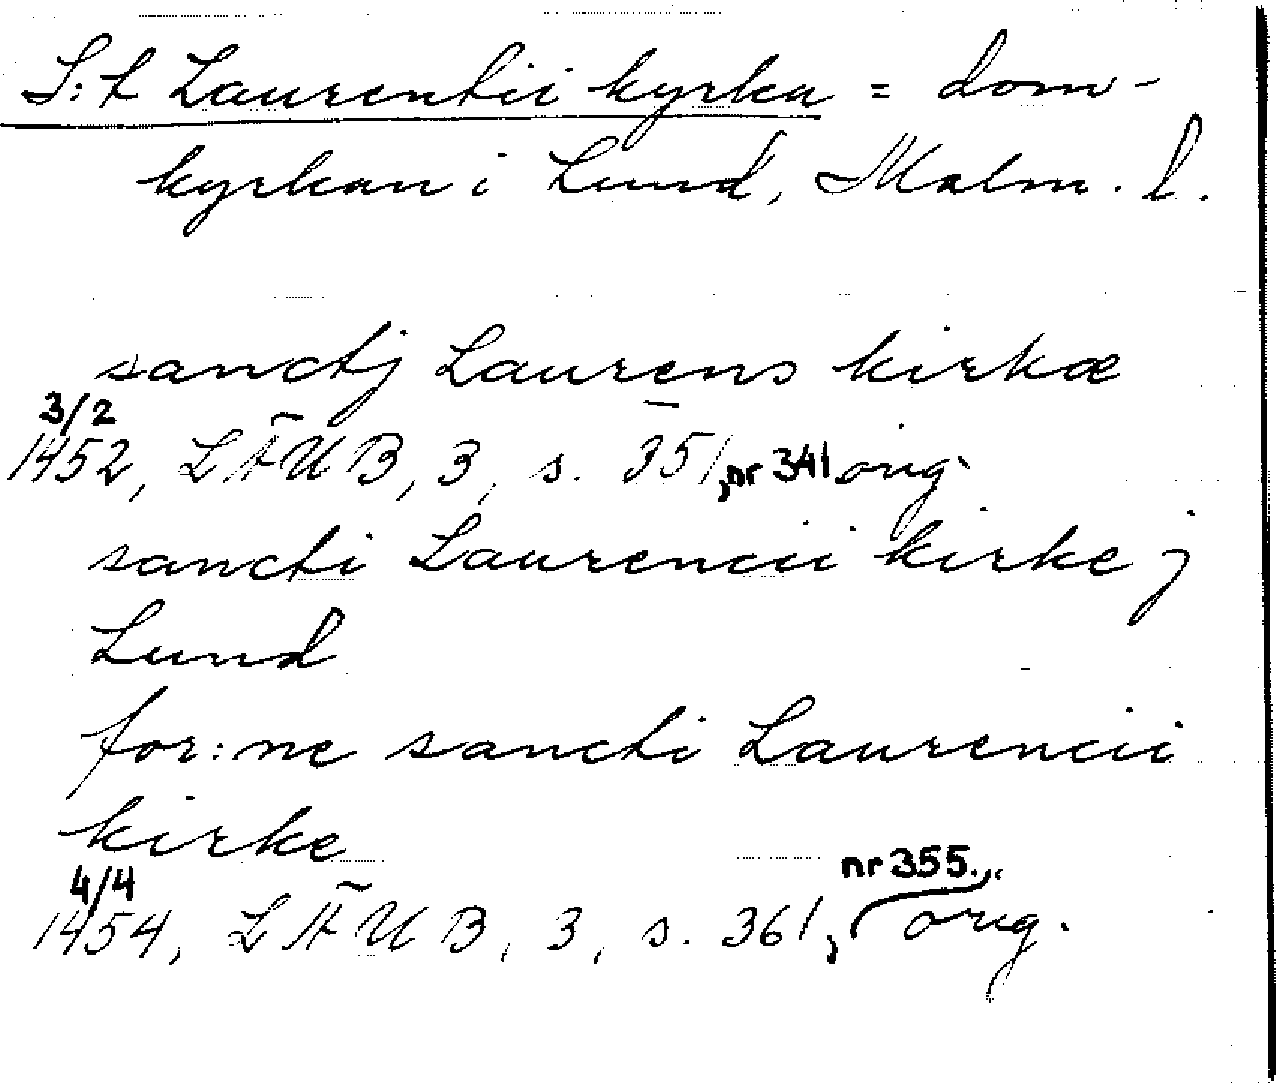 S:t Laurentii kyrka = dom-
kyrkan i Lund, Malm. l.
sanctj Laurens kirkæ
3/2
1452, LÄUB, 3, s. 351, nr 341 orig.
sancti Laurencii kirke j
Lund
for:ne sancti Laurencii
kirke
4/4 nr 355.,
1454, LÄUB, 3, s. 361, orig.